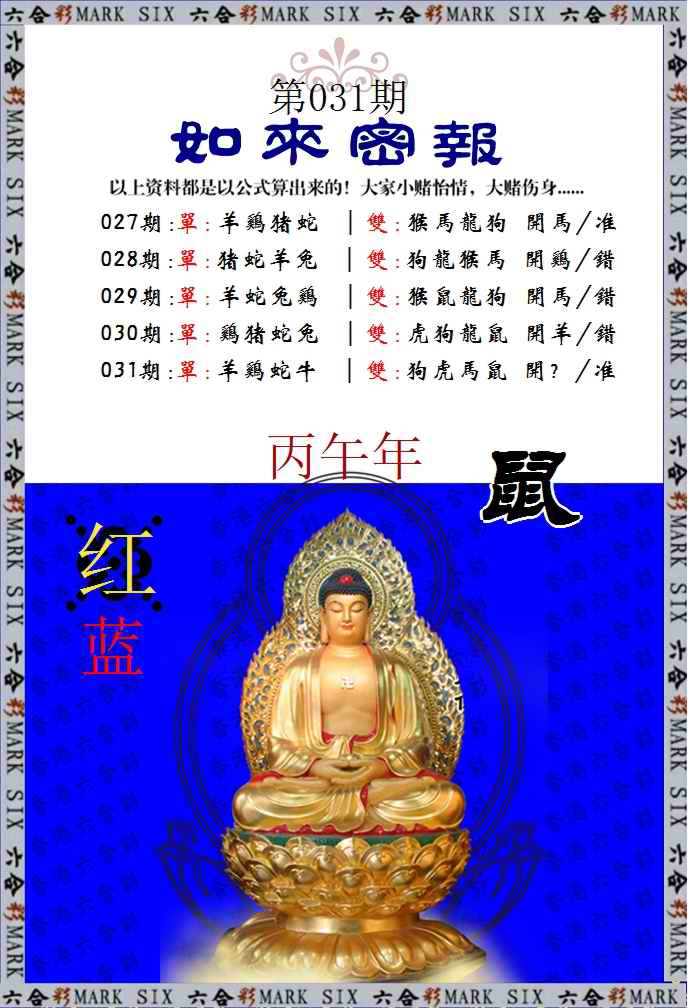 六合彩MARK SIX 六合彩MARK SIX 六合彩MARK SIX 六合彩MARK SIX 六合彩MARK SIX
第031期
如來密報
以上资料都是以公式算出来的！大家小赌怡情，大赌伤身......
027期:單:羊鷄猪蛇 | 雙:猴馬龍狗 開馬/准
028期:單:猪蛇羊兔 | 雙:狗龍猴馬 開鷄/錯
029期:單:羊蛇兔鷄 | 雙:猴鼠龍狗 開馬/錯
030期:單:鷄猪蛇兔 | 雙:虎狗龍鼠 開羊/錯
031期:單:羊鷄蛇牛 | 雙:狗虎馬鼠 開?/准
丙午年
鼠
红
蓝
六合彩MARK SIX 六合彩MARK SIX 六合彩MARK SIX 六合彩MARK SIX 六合彩MARK SIX